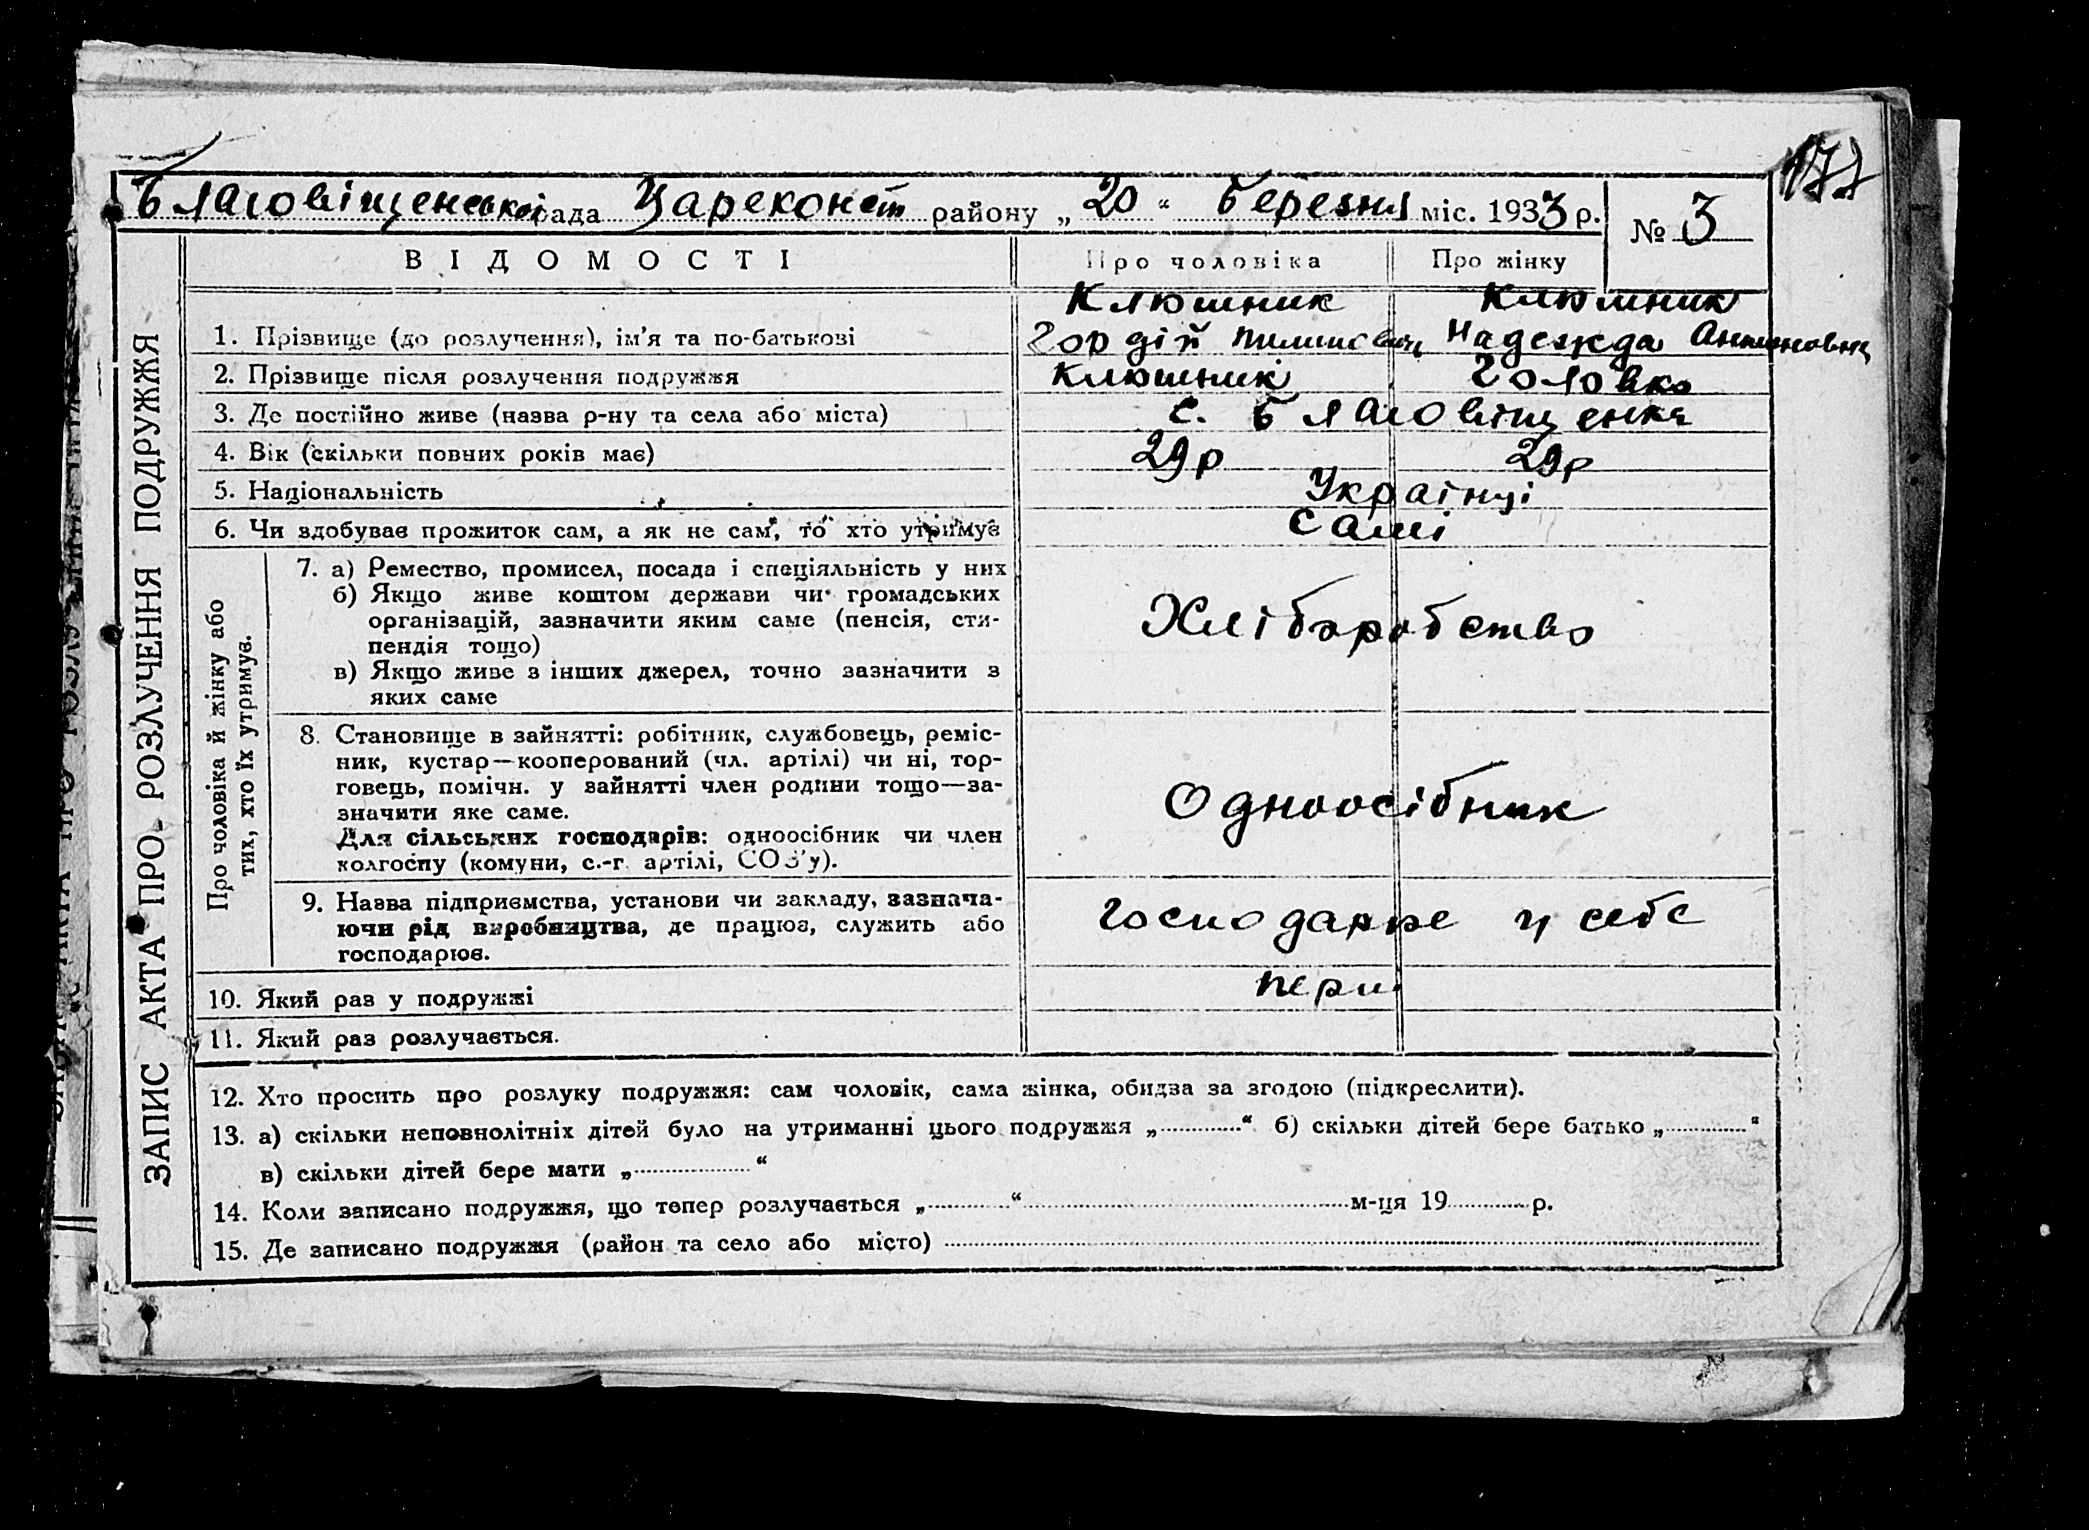 177
Благовіщенської рада Цареконст району „20“ Березня міс. 1933 р. № 3
ВІДОМОСТІ Про чоловіка Про жінку
Ключник Ключник
1. Прізвище (до розлучення), ім'я та по-батькові Гордій Пилипович Надежда Антоновна
2. Прізвище після розлучення подружжя Ключник Головко
3. Де постійно живе (назва р-ну та села або міста) с. Благовіщенка
4. Вік (скільки повних років має) 29р 29р
5. Національність Українці
6. Чи здобуває прожиток сам, а як не сам, то хто утримує самі
Про чоловіка й жінку або
тих, хто їх утримує.
7. а) Ремество, промисел, посада і спеціяльність у них
б) Якщо живе коштом держави чи громадських
організацій, зазначити яким саме (пенсія, сти-
пендія тощо)
Хліборобство
в) Якщо живе з інших джерел, точно зазначити з
яких саме
8. Становище в зайнятті: робітник, службовець, реміс-
ник, кустар—кооперований (чл. артілі) чи ні, тор-
говець, помічн. у зайнятті член родини тощо—за-
значити яке саме.
Одноосібник
Для сільських господарів: одноосібник чи член
колгоспу (комуни, с.-г. артілі, СОЗ'у).
9. Назва підприємства, установи чи закладу, зазнача-
ючи рід виробництва, де працює, служить або
господарює.
Господарює у себе
10. Який раз у подружжі перш
11. Який раз розлучається.
12. Хто просить про розлуку подружжя: сам чоловік, сама жінка, обидва за згодою (підкреслити).
13. а) скільки неповнолітніх дітей було на утриманні цього подружжя „ “ б) скільки дітей бере батько „ “
в) скільки дітей бере мати „ “
14. Коли записано подружжя, що тепер розлучається „ “ м-ця 19 р.
15. Де записано подружжя (район та село або місто)
ЗАПИС АКТА ПРО РОЗЛУЧЕННЯ ПОДРУЖЖЯ